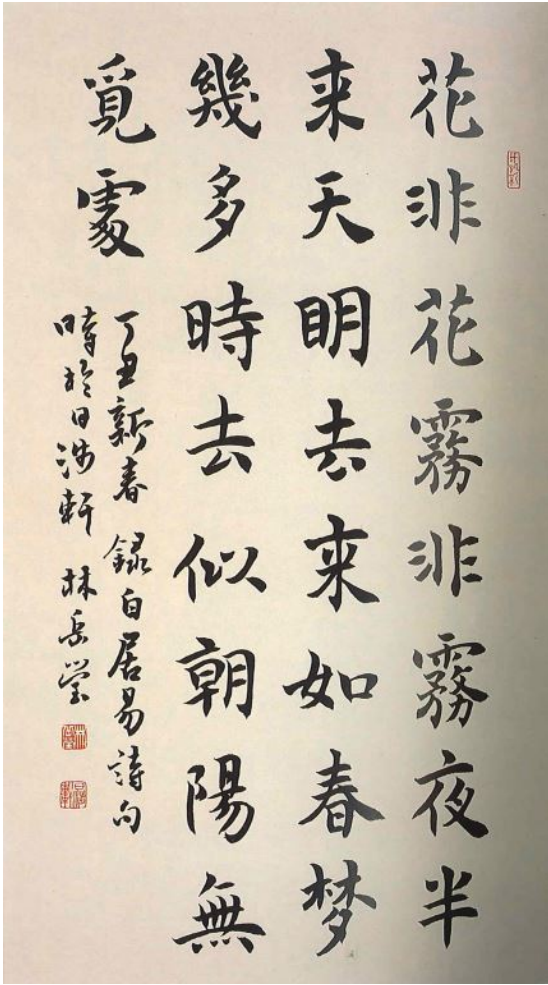 花非花霧非霧夜半
来天明去来如春梦
幾多時去似朝陽無
覓處
丁丑新春 録白居易詩句
時於日涉軒 林岳瑩